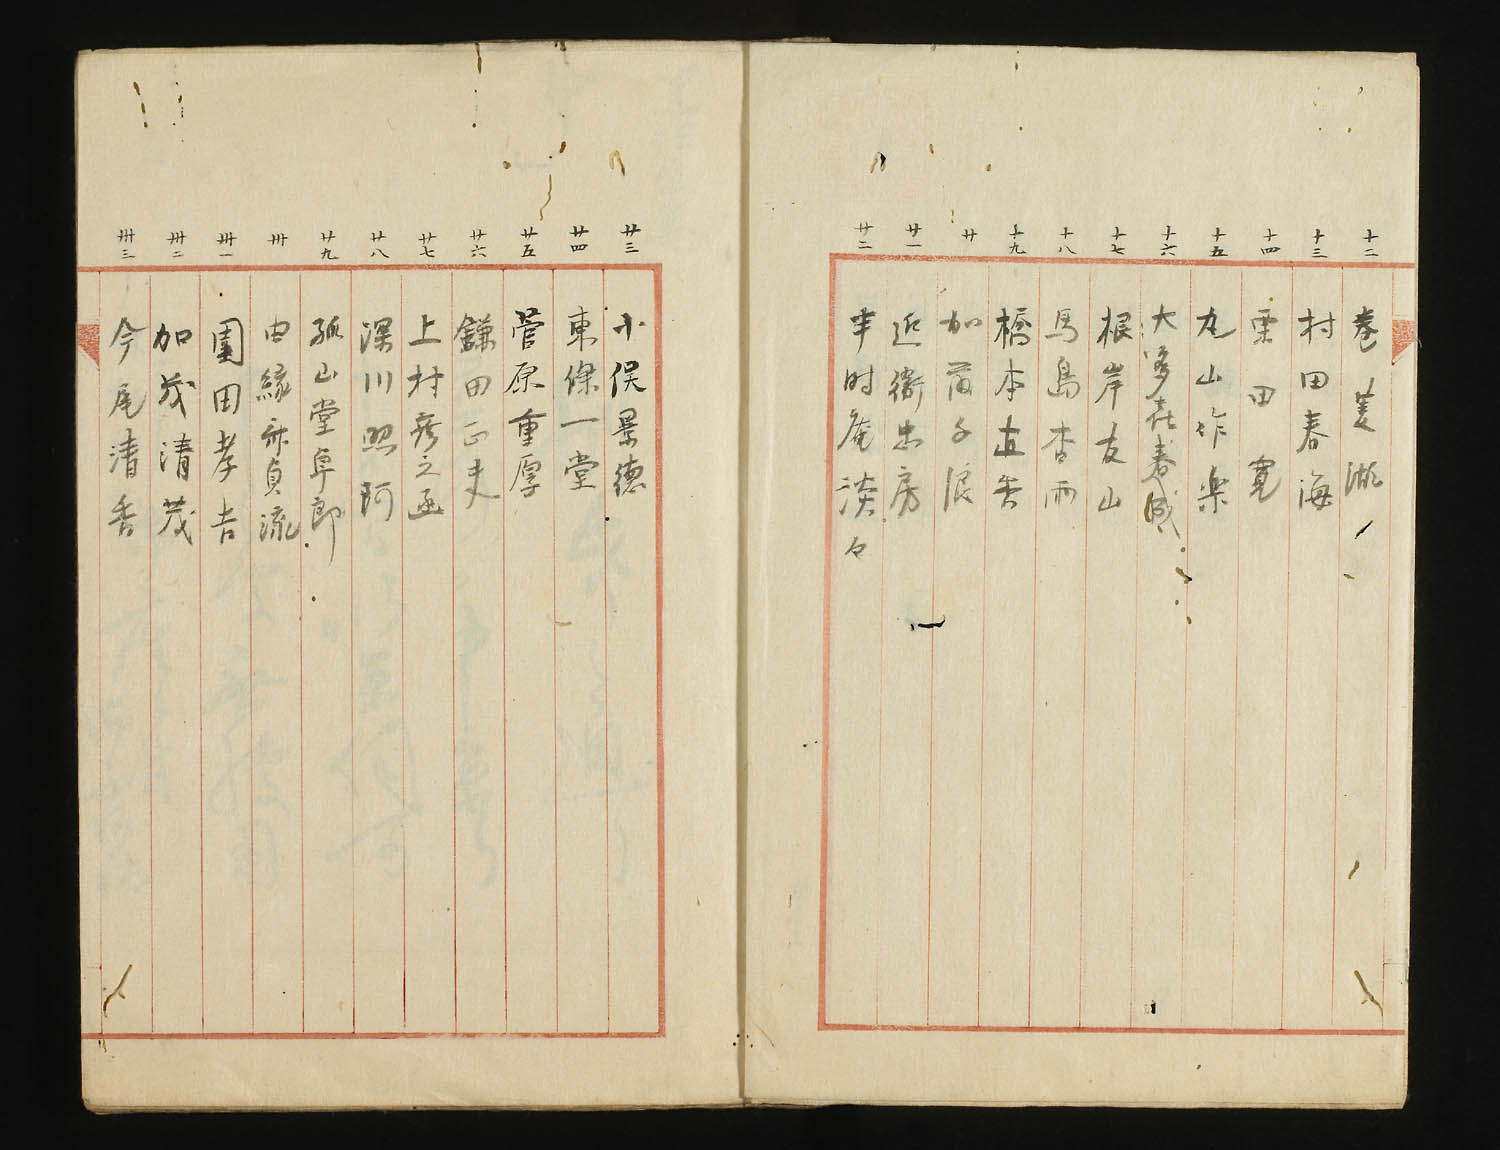 十二 巻菱湖
十三 村田春海
十四 栗田寛
十五 丸山作楽
十六 大多喜春成
十七 根岸友山
十八 馬島杏雨
十九 橋本直香
廿 加茂千浪
廿一 近衛忠房
廿二 半時庵淡々
廿三 小俣景徳
廿四 東條一堂
廿五 菅原重厚
廿六 鎌田正夫
廿七 上村彦之丞
廿八 深川照阿
廿九 孤山堂卓郎
卅 由縁斎貞流
卅一 園田孝吉
卅二 加茂清茂
卅三 今尾清香